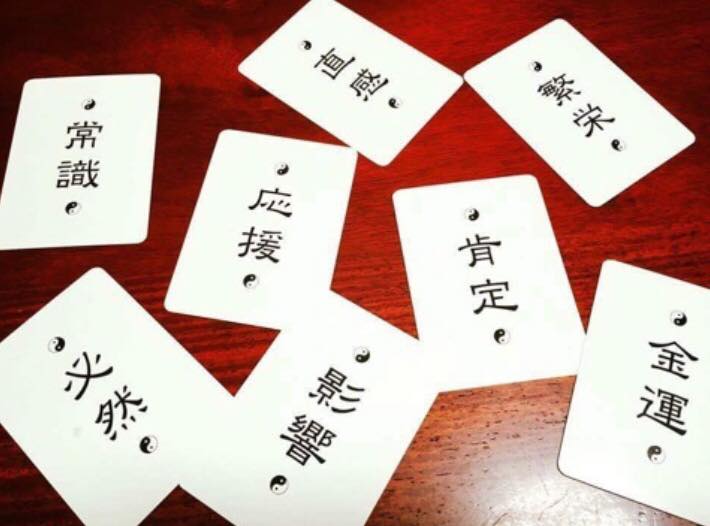 直感
繁栄
常識
応援
肯定
金運
必然
影響